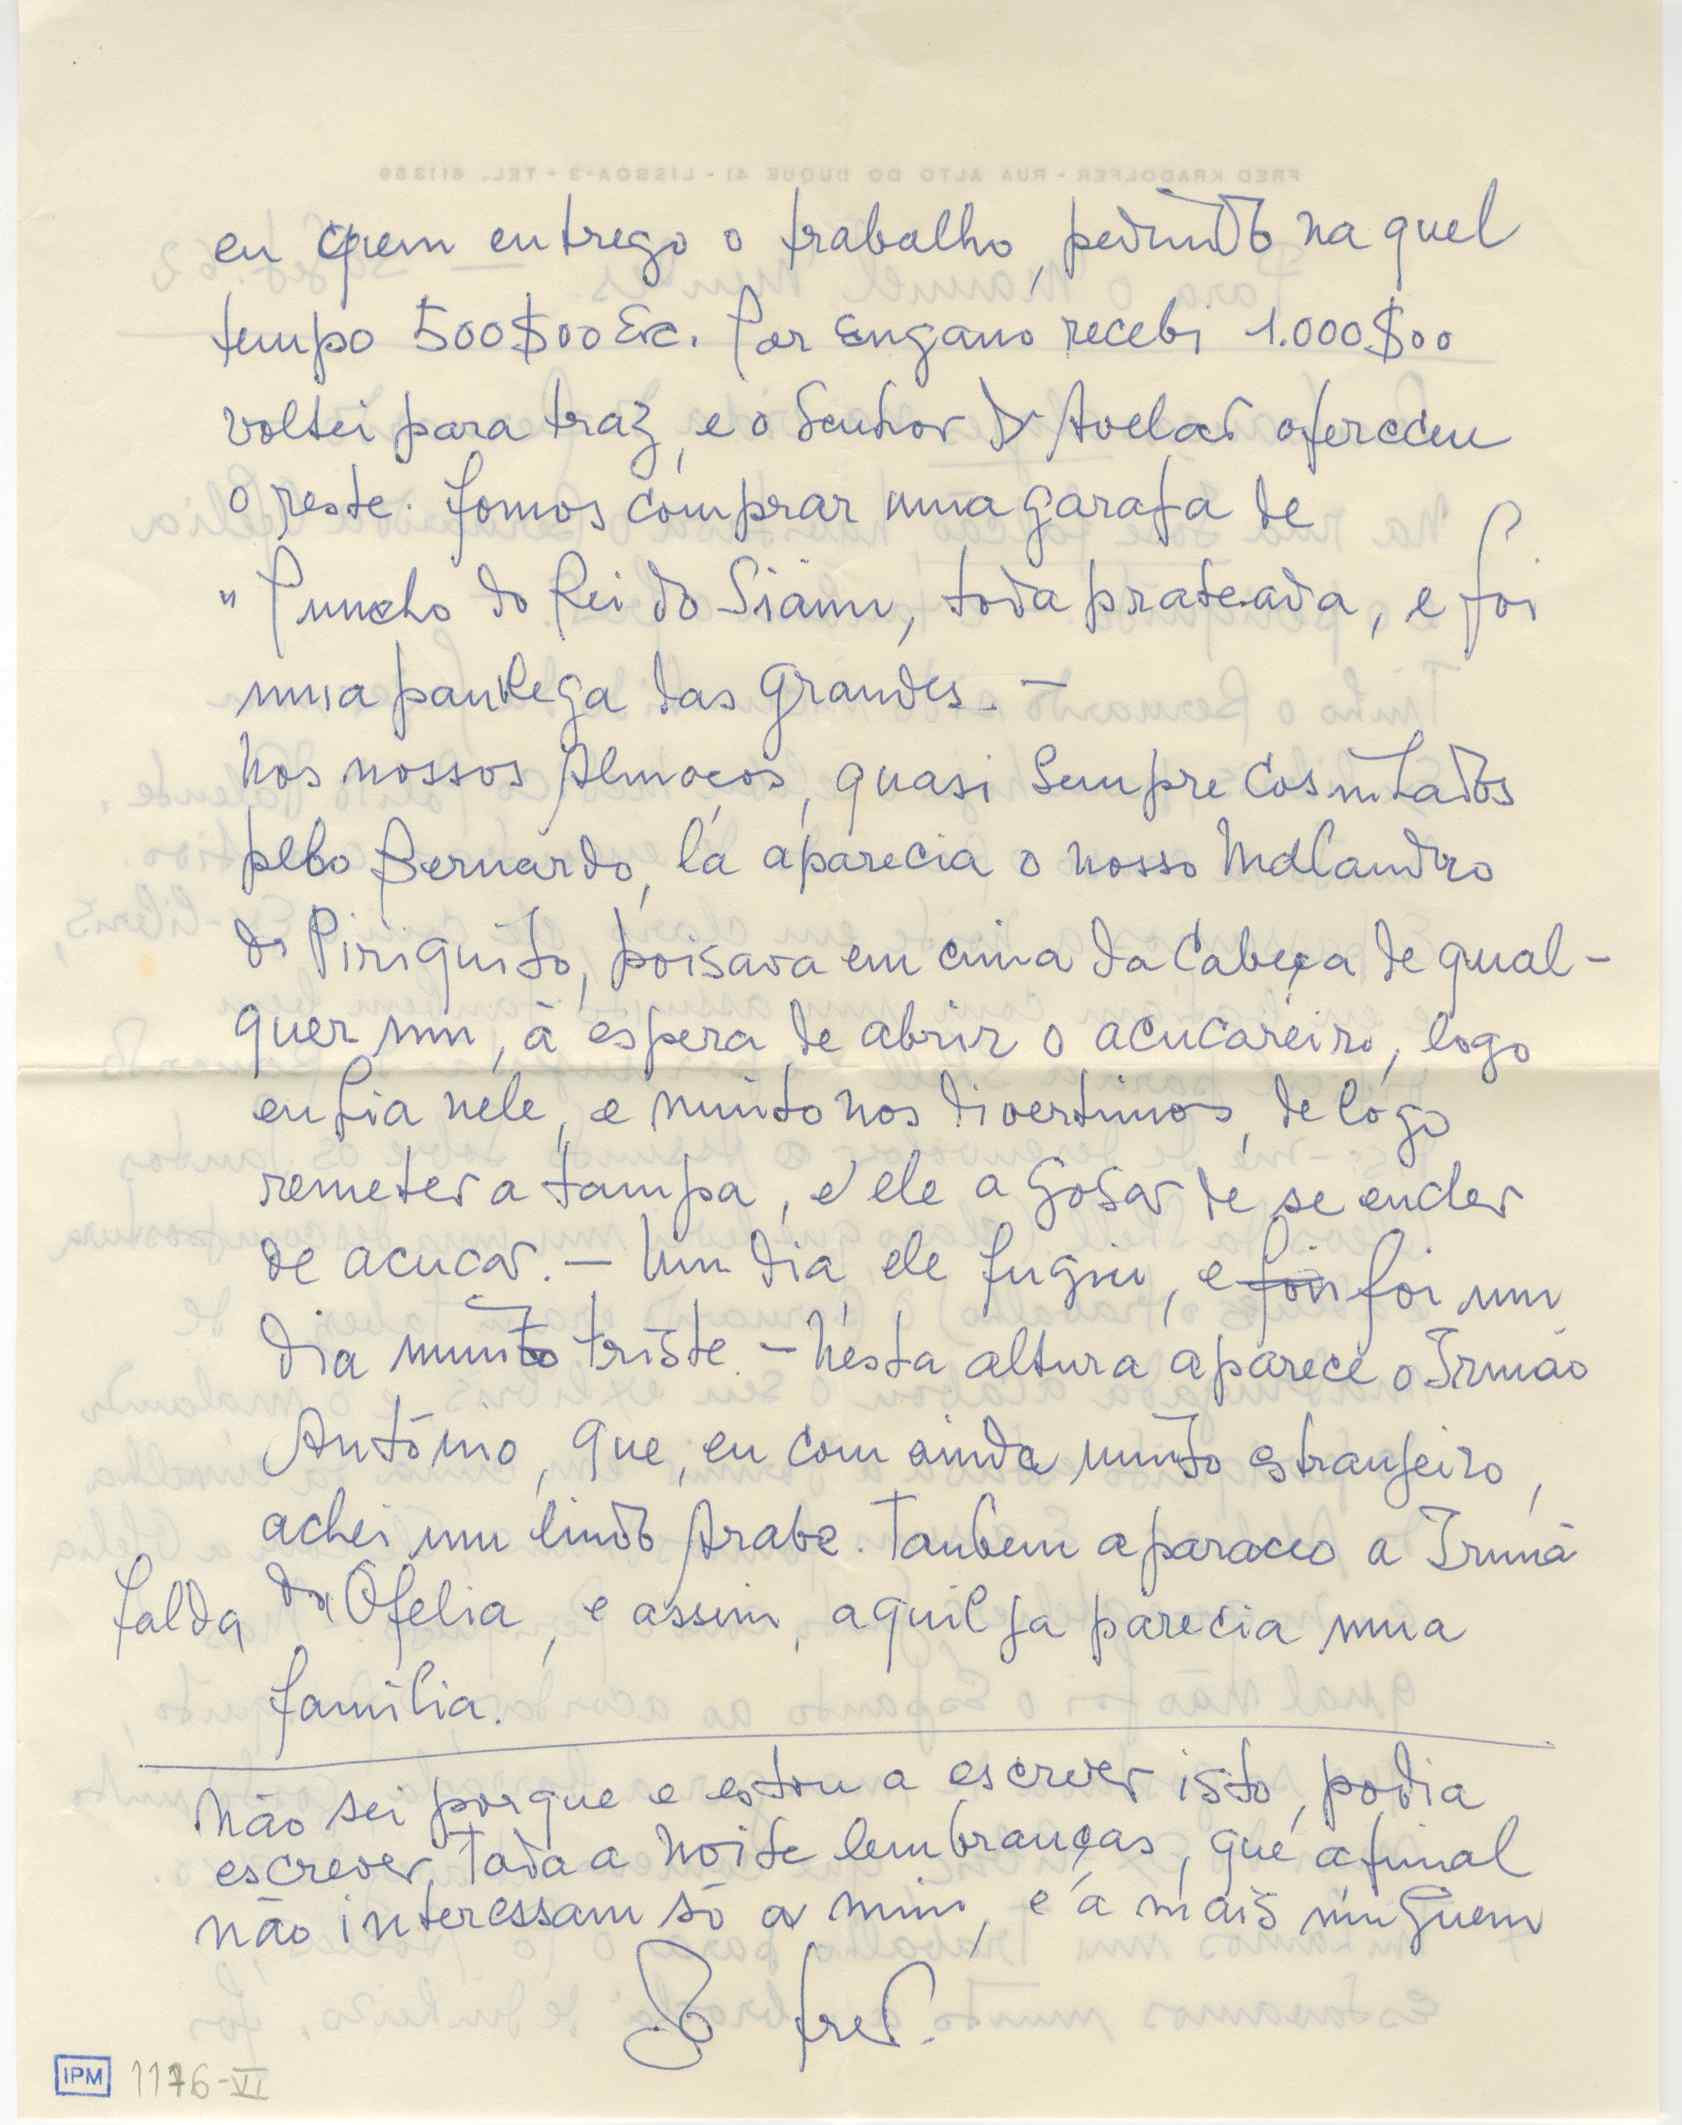 FRED KRADOLFER - RUA ALTO DO DUQUE 41 - LISBOA-3 - TEL. 611386
eu quem entrego o trabalho, pedindo na quel
tempo 500$00 Esc. Por Engano recebi 1.000$00
voltei para traz, e o Senhor Dr Avelar oferceeu
o reste. fomos comprar uma garafa de
" Puncho do Rei do Siäm, toda prateada, e foi
uma pandega das Grandes. —
Nos nossos Almoços, quasi Sempre Cosinhados
pelo Bernardo, lá aparecia o nosso Malandro
do Piriquito, poisava em cima da Cabeça de qual-
quer um, à espera de abrir o acucareiro, logo
enfia nele, e muito nos divertimos, de logo
remeter a tampa, e ele a Gosar de se encher
de acucar. — Um dia ele fugiu, e foi foi um
dia muito triste — Nesta altura aparece o Irmão
António, que, eu com ainda muito estranjeiro,
achei um lindo Arabe. Tambem aparaceo a Irmã
falda da Ofelia, e assim, aquil ja parecia uma
família.
Não sei porque e estou a escrever isto, podia
escrever toda a Noite lembranças, que afinal
não interessam só a mim, e á mais ninguem
Fred.
IPM 1176-VI